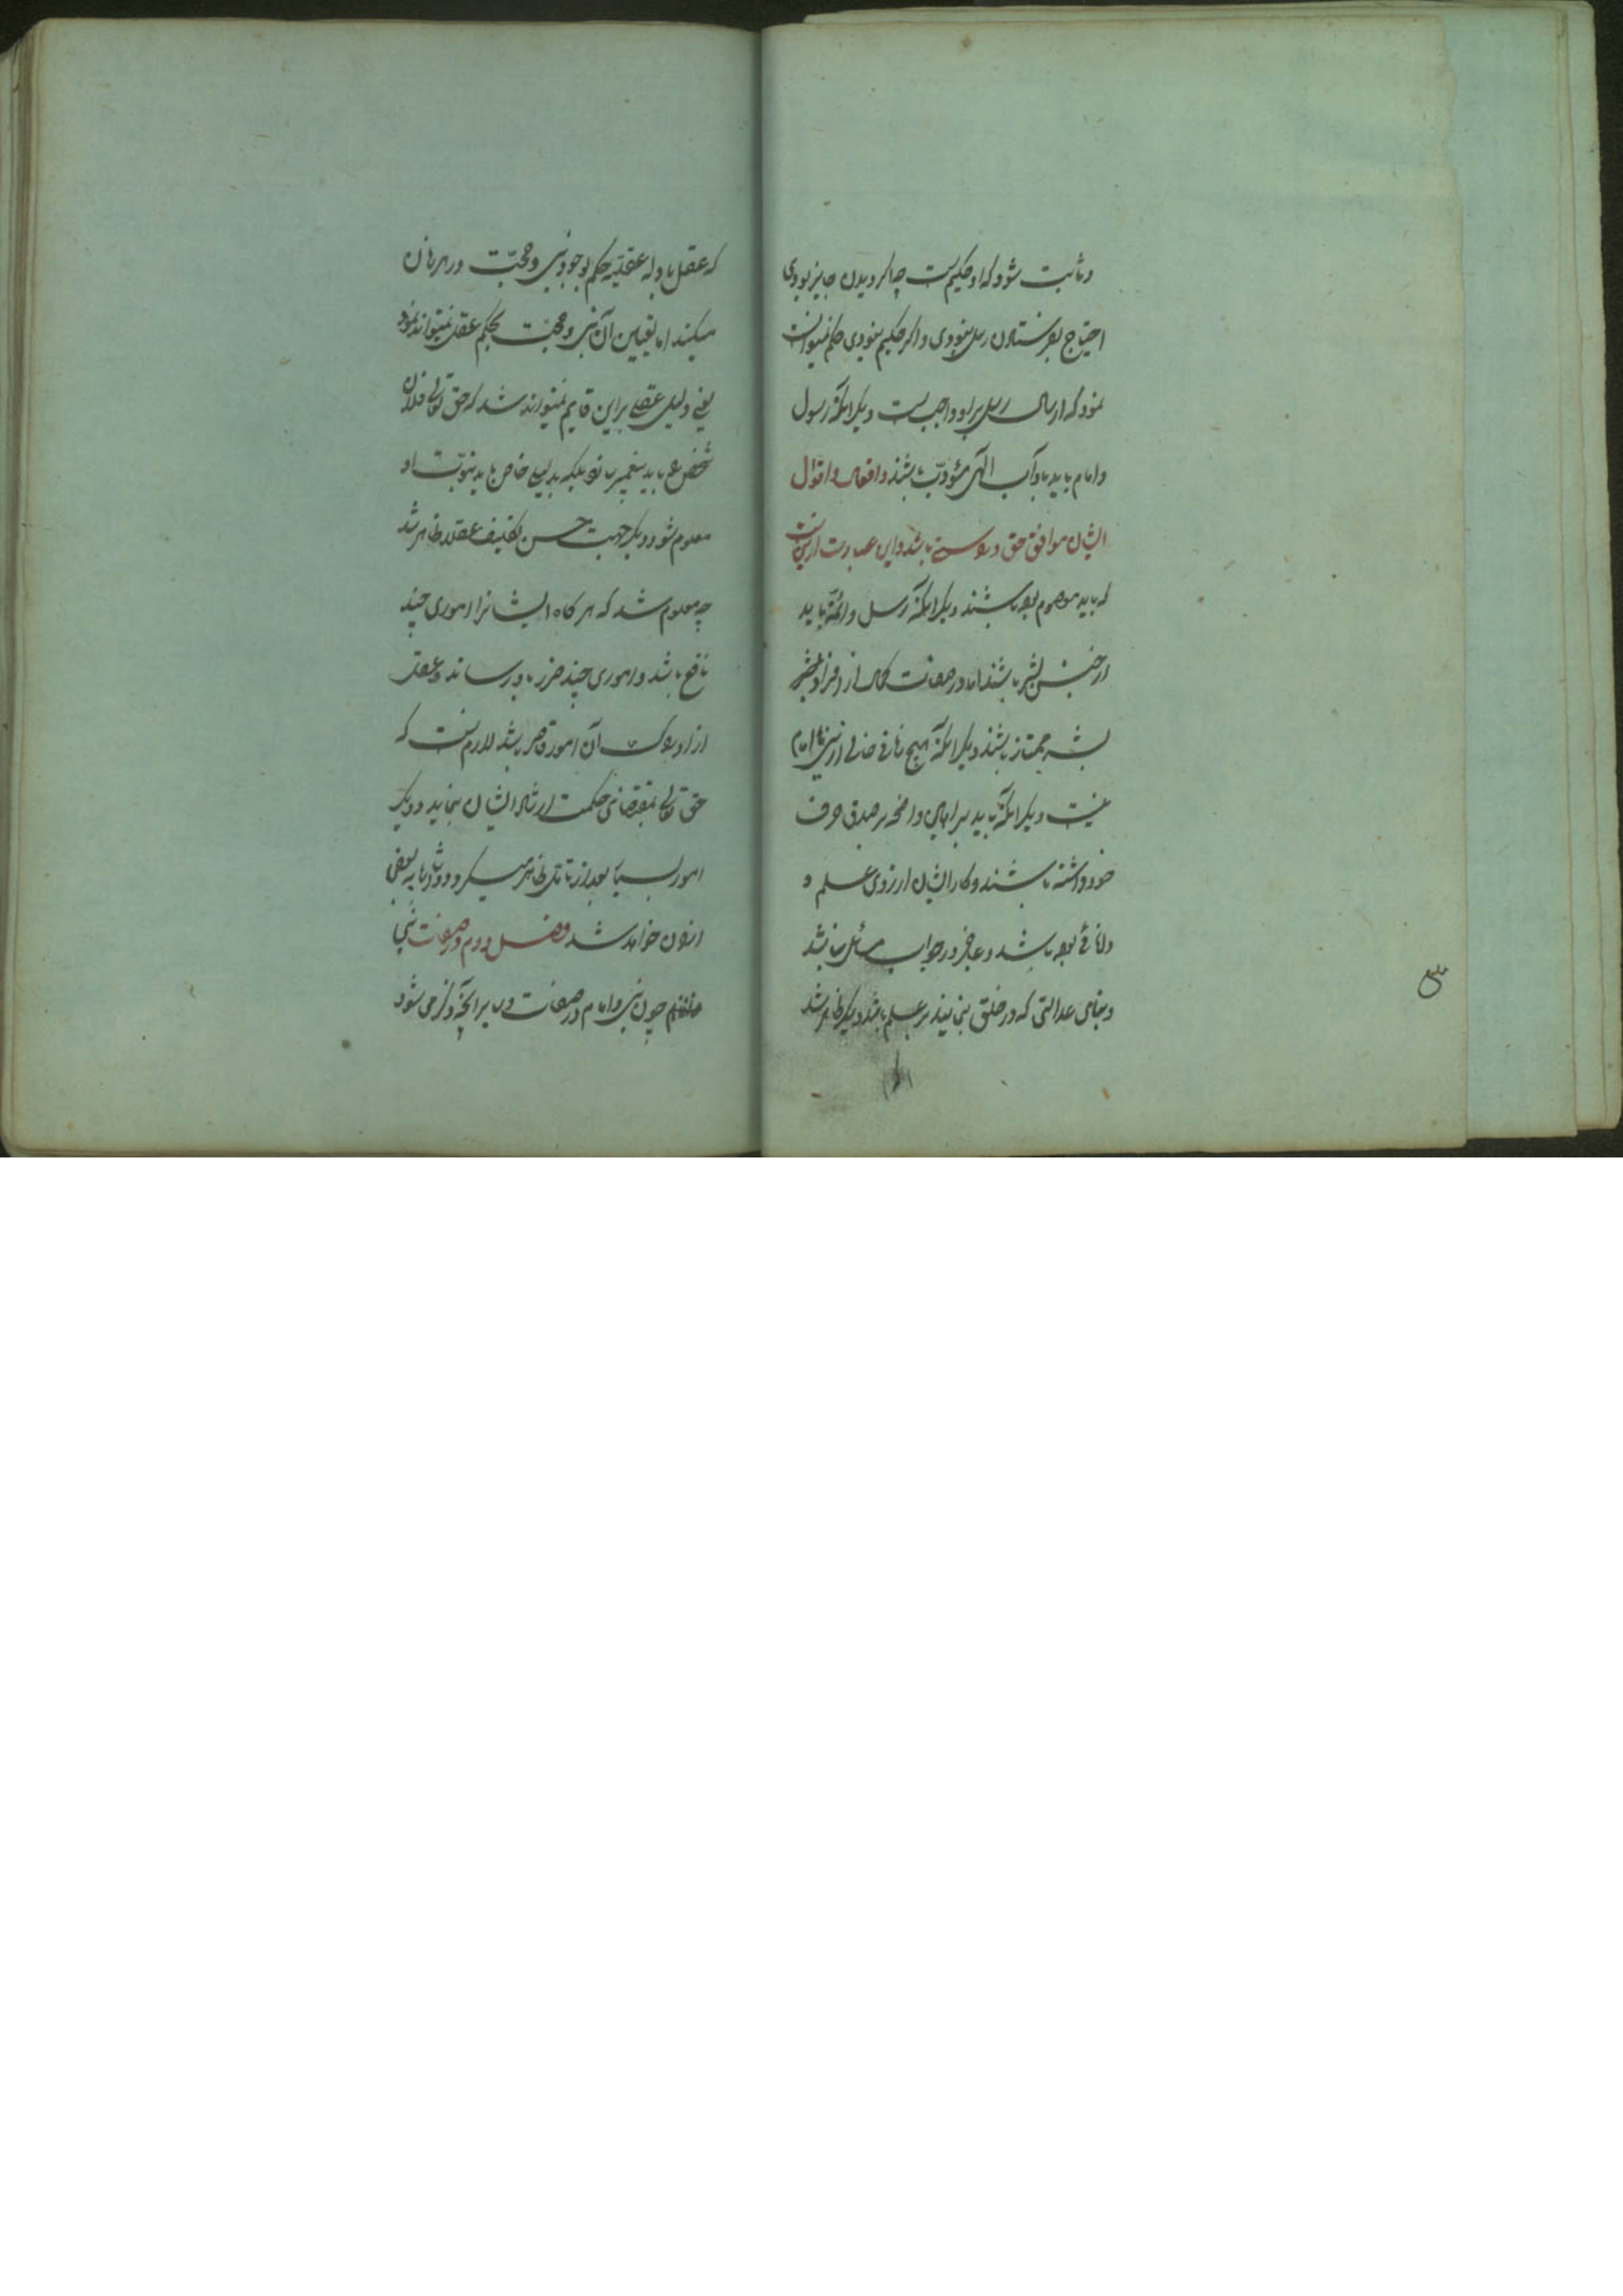 و ثابت شود که او حکیم است چه اگر دیدن جایز بودی
احتیاج بفرستادن رسل نبودی و اگر حکیم نبودی حکم نمیتوانست
نمود که ارسال رسل بر او واجب است دیگر آنکه رسول
و امام باید بآداب الهی مؤدّب باشند و افعال و اقوال
ایشان موافق حق و راستی باشد و این عبارت ازینست
که باید معصوم بوده باشند دیگر آنکه رسل و ائمّه باید
از جنس بشر باشند اما در صفات کمال از افراد
بشر ممتاز باشند دیگر آنکه هیچ زمانی خالی از نبی یا امام
نیست دیگر آنکه باید براهین واضحه بر صدق حرف
خود داشته باشند و کار ایشان از روی علم و
دانائی بوده باشد و عاجز در جواب مسائل نباشد
و بنای عدالتی که در خلق می نهند بر علم باشد دیگر ظاهر شد
که عقل بادله عقلیّه حکم بوجود نبی و حجّت در هر زمان
میکند اما تعیین آن نبی و حجّت بحکم عقل نمیتواند نمود
یعنی دلیل عقلی براین قایم نمیتواند شد که حق تعالی فلان
شخص را باید پیغمبر بلکه بدلیلی خاص باید نبوّت او
معلوم شود و دیگر جهت حسن تکلیف عقلا ظاهر شد
چه معلوم شد که هر گاه ایشانرا اموری چند
نافع باشد و اموری چند ضرر باو رساند و عقل
از ادراک آن امور قاصر باشد لازمست که
حق تعالی بمقتضای حکمت ارشاد ایشان بنماید و دیگر
امور بسیار بعد از تأمّل ظاهر میگردد و اشاره به بعضی
از آن خواهد شد فصل دوم در صفات نبی
چون نبی و امام در صفات برآنچه ذکر می شود